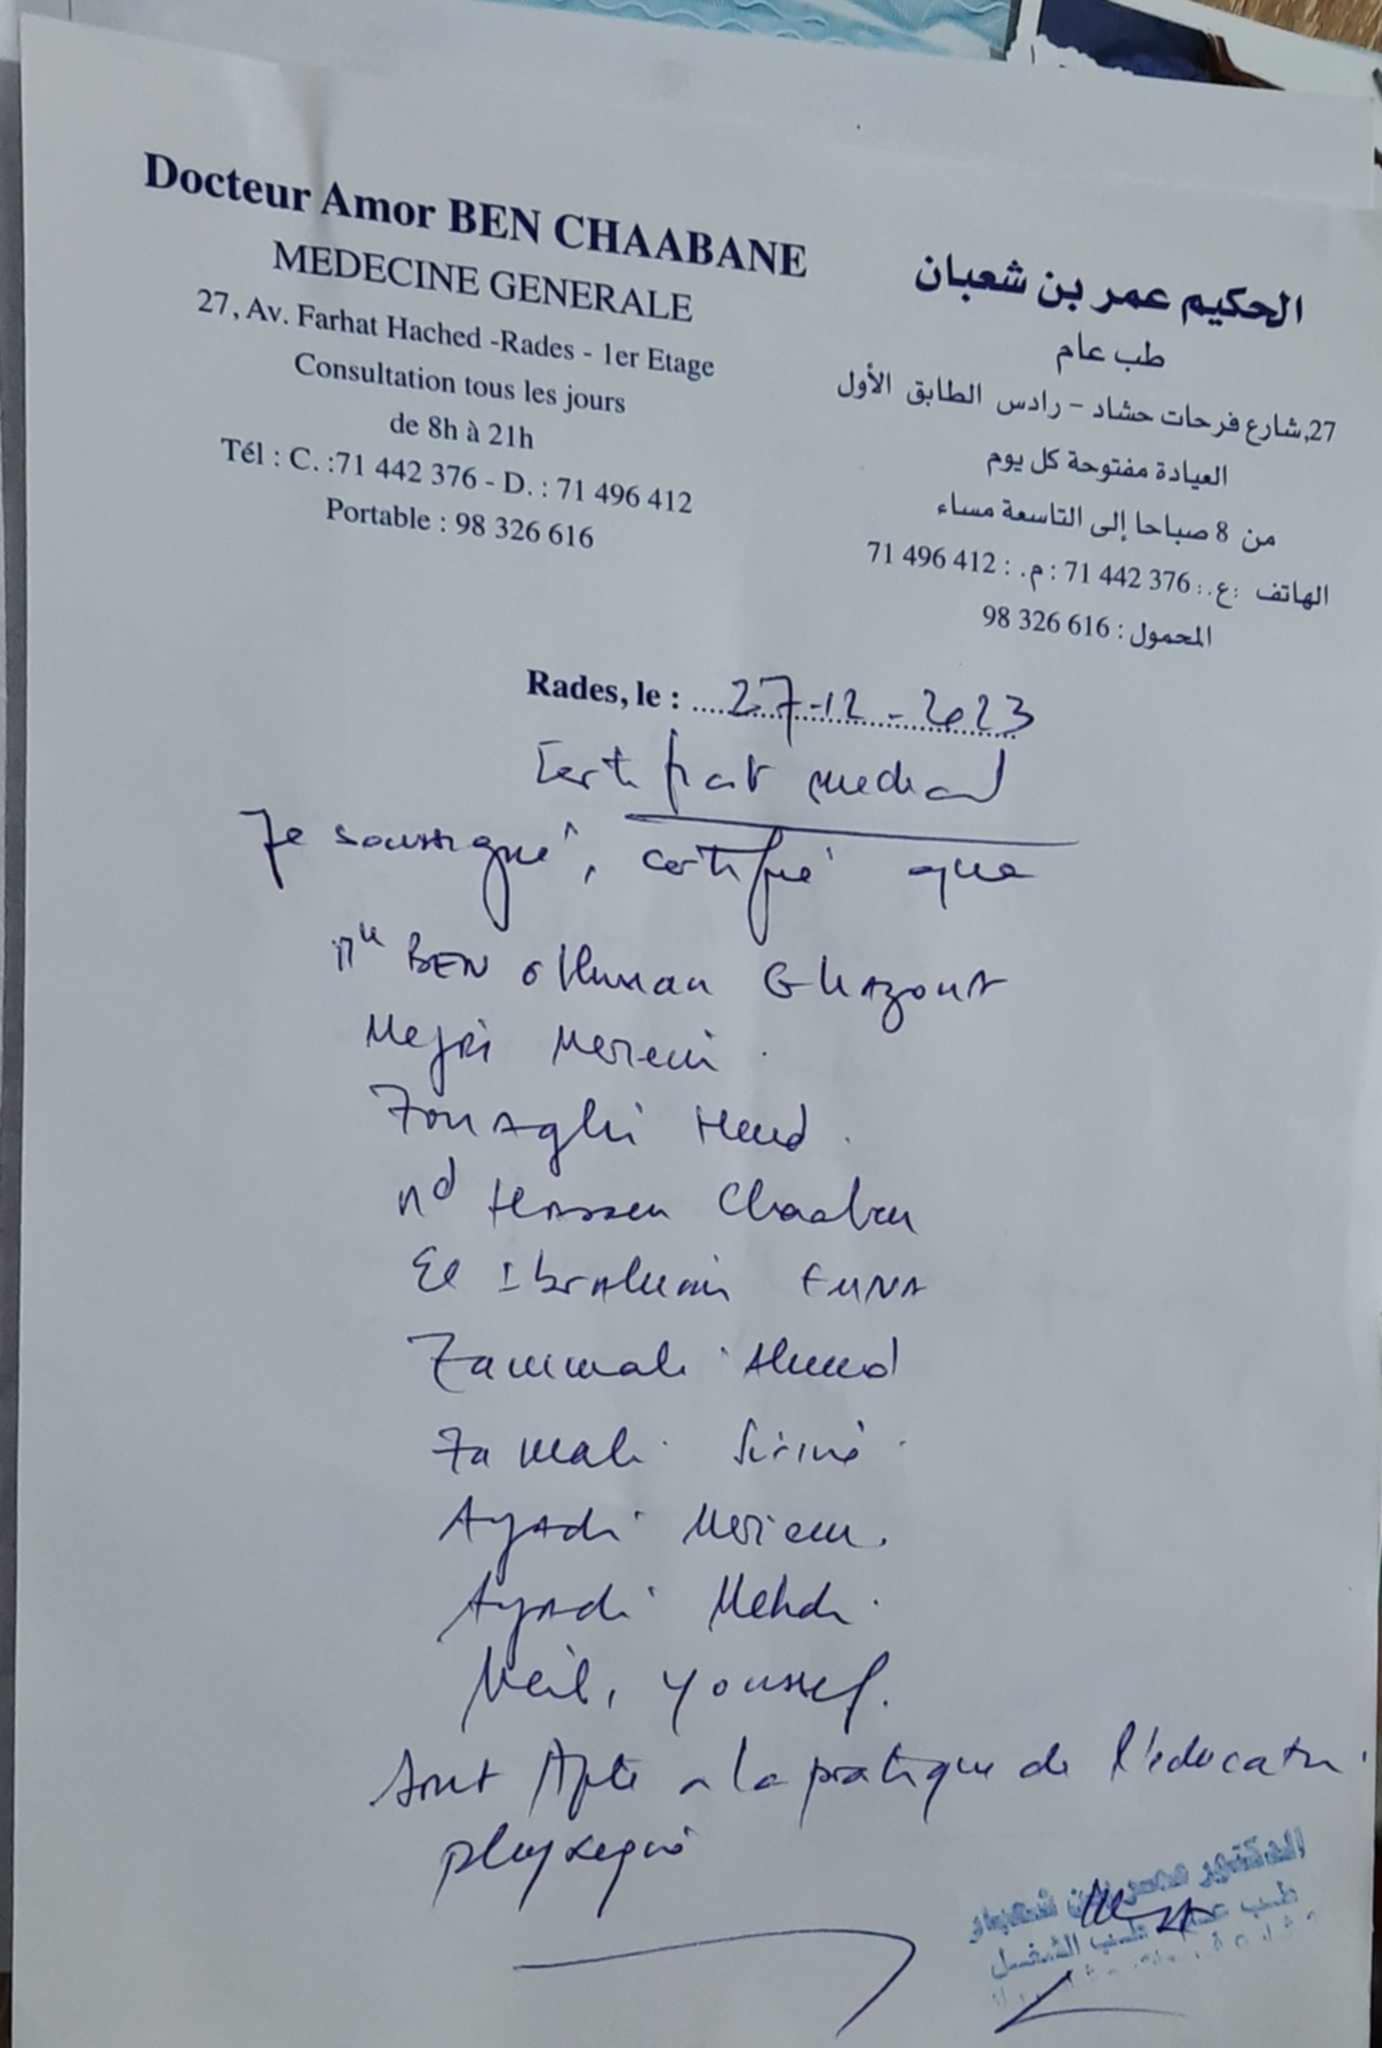 Docteur Amor BEN CHAABANE
MEDECINE GENERALE
27, Av. Farhat Hached -Rades - 1er Etage
Consultation tous les jours
de 8h à 21h
Tél : C. :71 442 376 - D. : 71 496 412
Portable : 98 326 616
الحكيم عمر بن شعبان
طب عام
27,شارع فرحات حشاد – رادس الطابق الأول
العيادة مفتوحة كل يوم
من 8 صباحا إلى التاسعة مساء
الهاتف :ع. : 71 442 376 : م. : 71 496 412
المحمول : 98 326 616
Rades, le : 27-12-2023
Certificat medical
Je soussigné, certifié que
BEN Othman
Mejri Meriem
Hend
Hassen Chaaben
El Ibrahim
Zammali Ahmed
Zamali Sirine
Ayadi Meriem.
Ayadi Mehdi
Neil, Youssef.
sont Apte a la pratique de l'education
physique
الدكتور عمر بن شعبان
طب الشغل